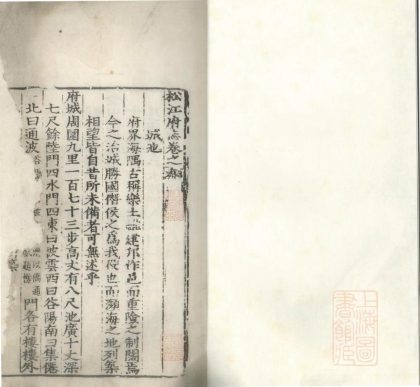 松江府志卷之
城池
府界海隅古稱樂土設建邦作邑而重險之制闕焉
今之治城勝國僭侯之為我役也而瀕海之地列築
相望皆自昔所未備者可無述乎
府城周圍九里一百七十三步高丈有八尺池廣十丈深
七尺餘陸門四水門四東曰披雲西曰谷陽南曰集僊
北曰通波 門各有樓樓外
上海圖書館藏